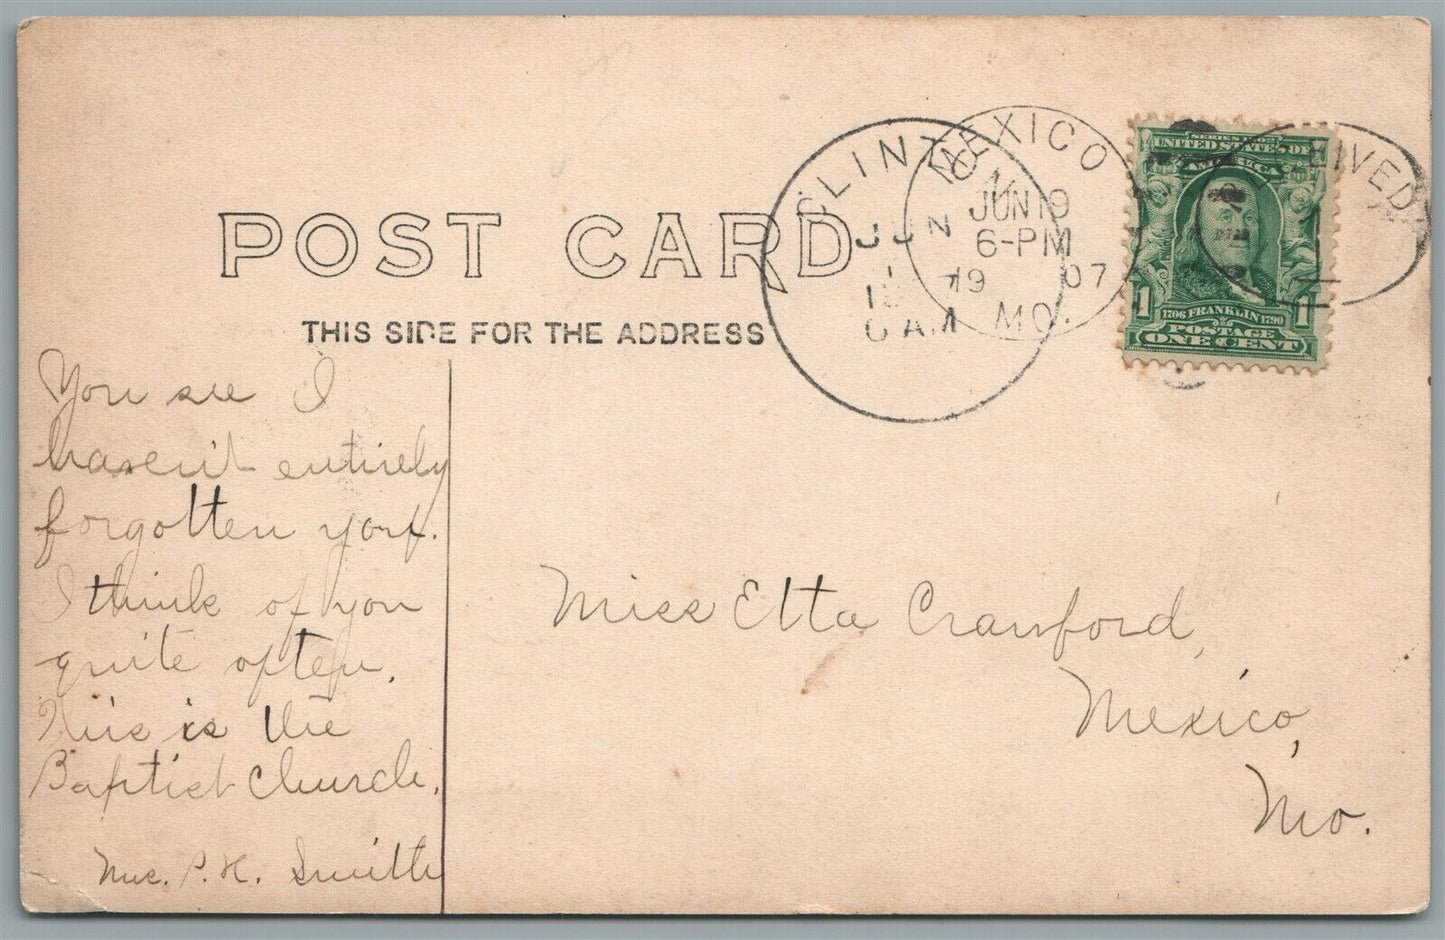 POST CARD
THIS SIDE FOR THE ADDRESS
CLINTON
JUN
AM
MEXICO
JUN 19
6-PM
19 07
MO.
SERIES 1902
UNITED STATES OF
AMERICA
1706 FRANKLIN 1790
POSTAGE
1 ONE CENT 1
You see I
haven't entirely
forgotten you.
I think of you
quite often.
This is the
Baptist Church.
Mrs. P. H. Smith
Miss Etta Crawford,
Mexico,
Mo.